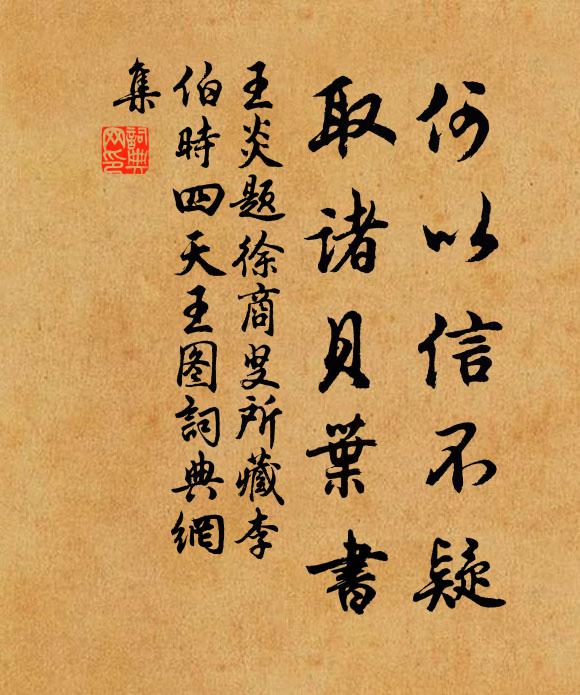 何以信不疑
取諸貝葉書
王炎題徐商叟所藏李
伯時四天王图詞典網
集
詞典
网印